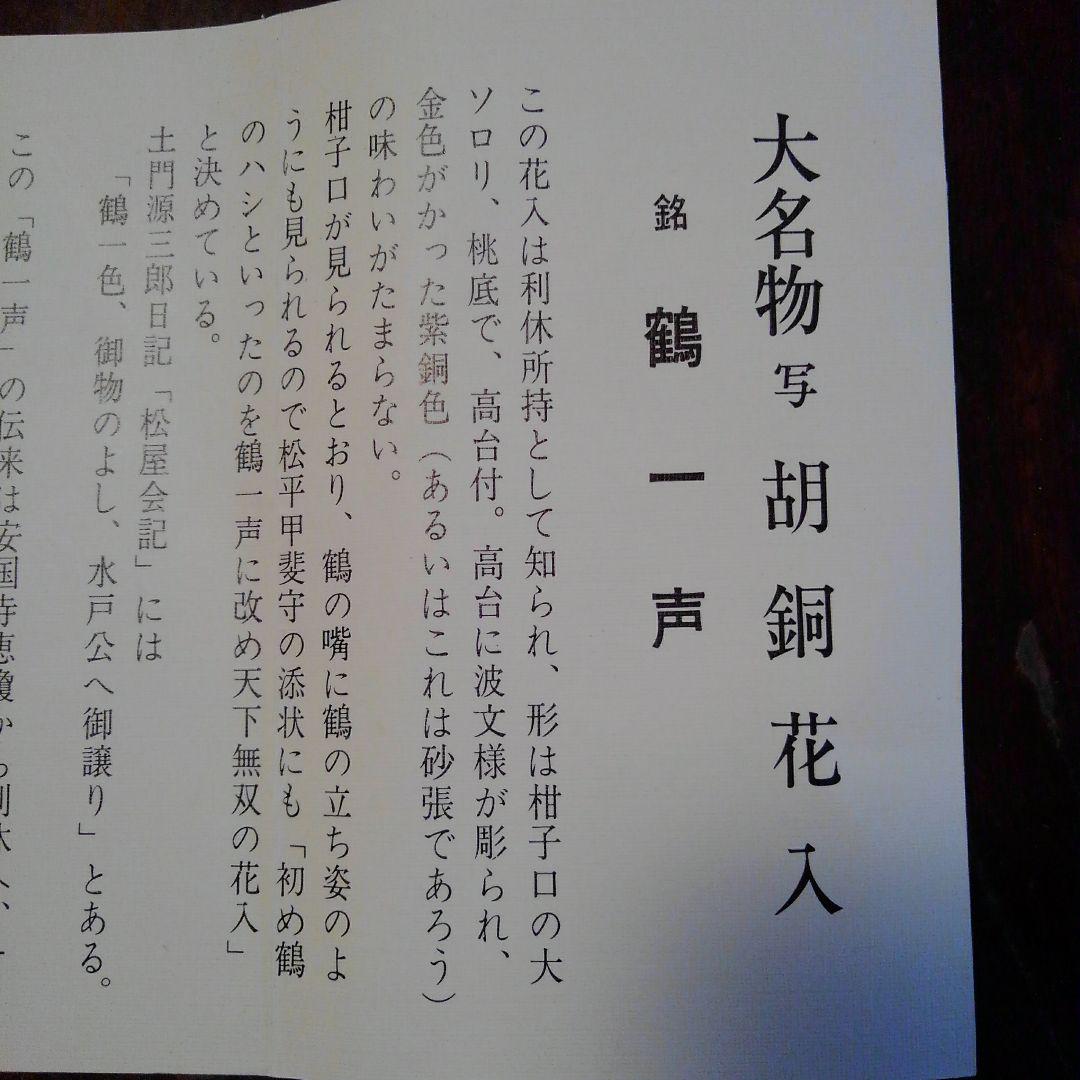 大名物写 胡銅花入
銘 鶴一声
この花入は利休所持として知られ、形は柑子口の大
ソロリ、桃底で、高台付。高台に波文様が彫られ、
金色がかった紫銅色（あるいはこれは砂張であろう）
の味わいがたまらない。
柑子口が見られるとおり、鶴の嘴に鶴の立ち姿のよ
うにも見られるので松平甲斐守の添状にも「初め鶴
のハシといったのを鶴一声に改め天下無双の花入」
と決めている。
土門源三郎日記「松屋会記」には
「鶴一色、御物のよし、水戸公へ御譲り」とある。
この「鶴一声」の伝来は安国寺恵瓊から利休へ、